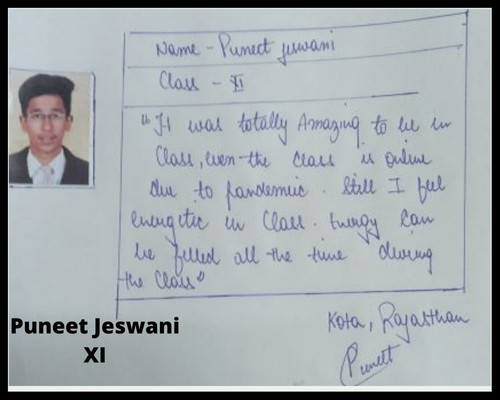 Name - Puneet Jeswani
Class - XI
"It was totally Amazing to be in
Class, even the class is online
due to pandemic. Still I feel
energetic in Class. Energy can
be filled all the time during
the Class"
Kota, Rajasthan
Puneet
Puneet Jeswani
XI